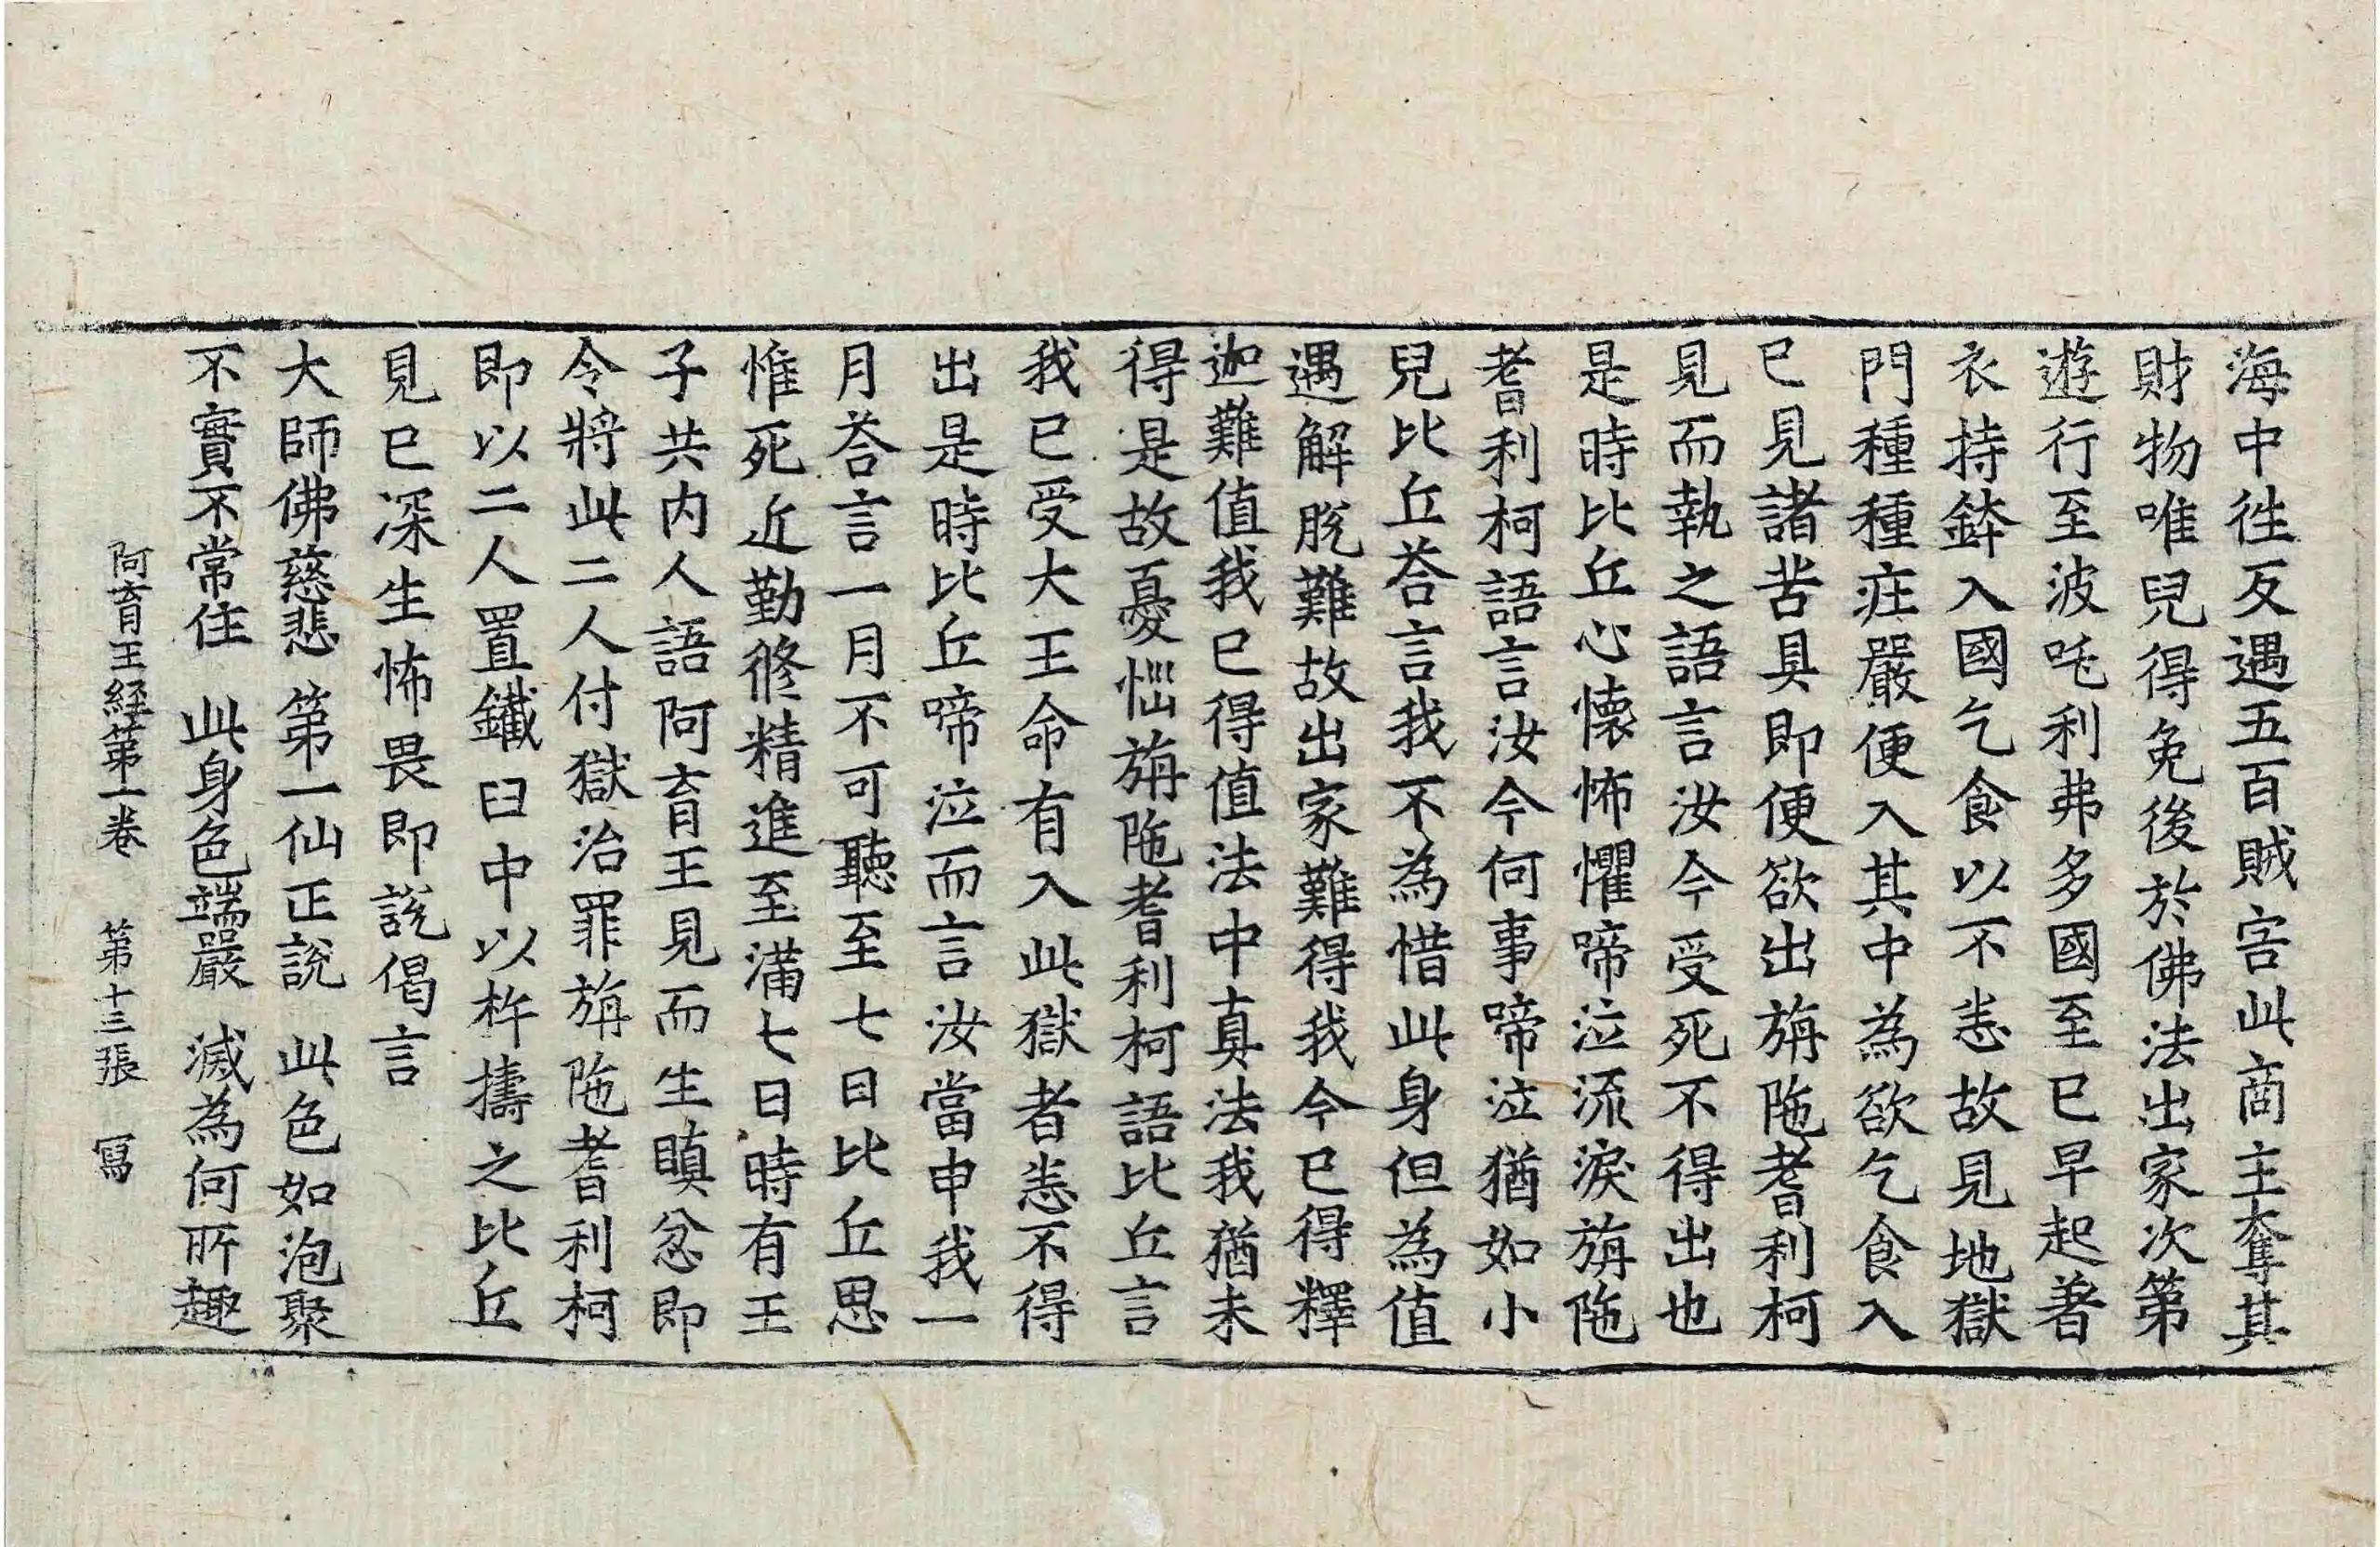 海中徃反遇五百賊害此商主奪其
財物唯兒得免後於佛法出家次第
遊行至波吒利弗多國至已早起著
衣持鉢入國乞食以不恙故見地獄
門種種庄嚴便入其中為欲乞食入
已見諸苦具即便欲出旃陁耆利柯
見而執之語言汝今受死不得出也
是時比丘心懐怖懼啼泣流淚旃陁
耆利柯語言汝今何事啼泣猶如小
兒比丘荅言我不為惜此身但為值
遇解脫難故出家難得我今已得釋
迦難值我已得值法中真法我猶未
得是故憂惱旃陁耆利柯語比丘言
我已受大王命有入此獄者恙不得
出是時比丘啼泣而言汝當申我一
月荅言一月不可聽至七日比丘思
惟死近勤修精進至滿七日時有王
子共內人語阿育王見而生瞋忿即
令將此二人付獄治罪旃陁耆利柯
即以二人置鐵臼中以杵擣之比丘
見已深生怖畏即說偈言
大師佛慈悲 第一仙正說 此色如泡聚
不實不常住 此身色端嚴 滅為何所趣
阿育王経第一卷 第十三張 冩